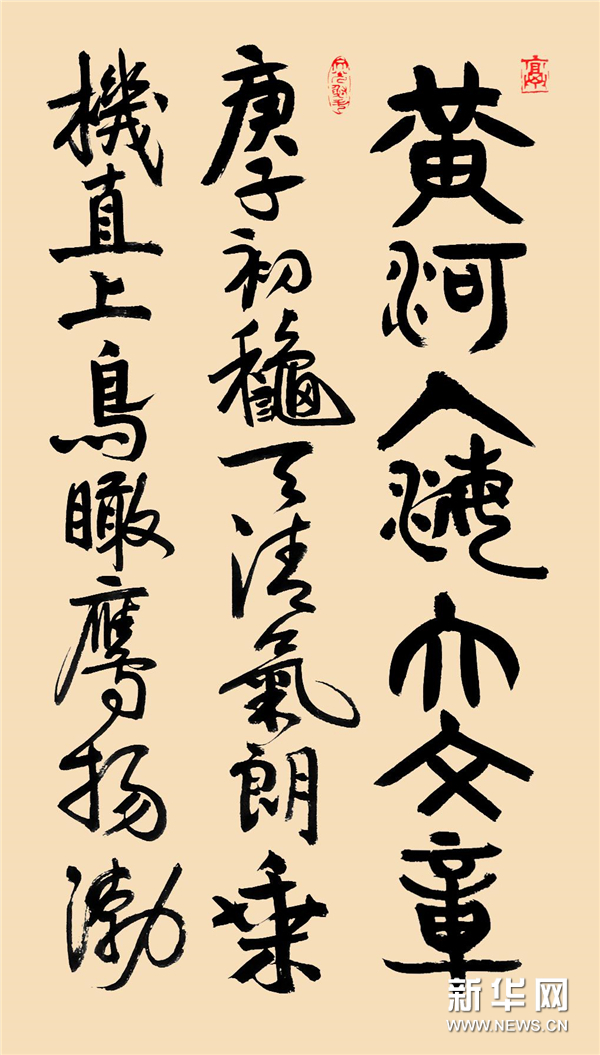 黄河入海大文章
庚子初穐天清氣朗乘
機直上鳥瞰鷹揚渤
新华网
WWW.NEWS.CN